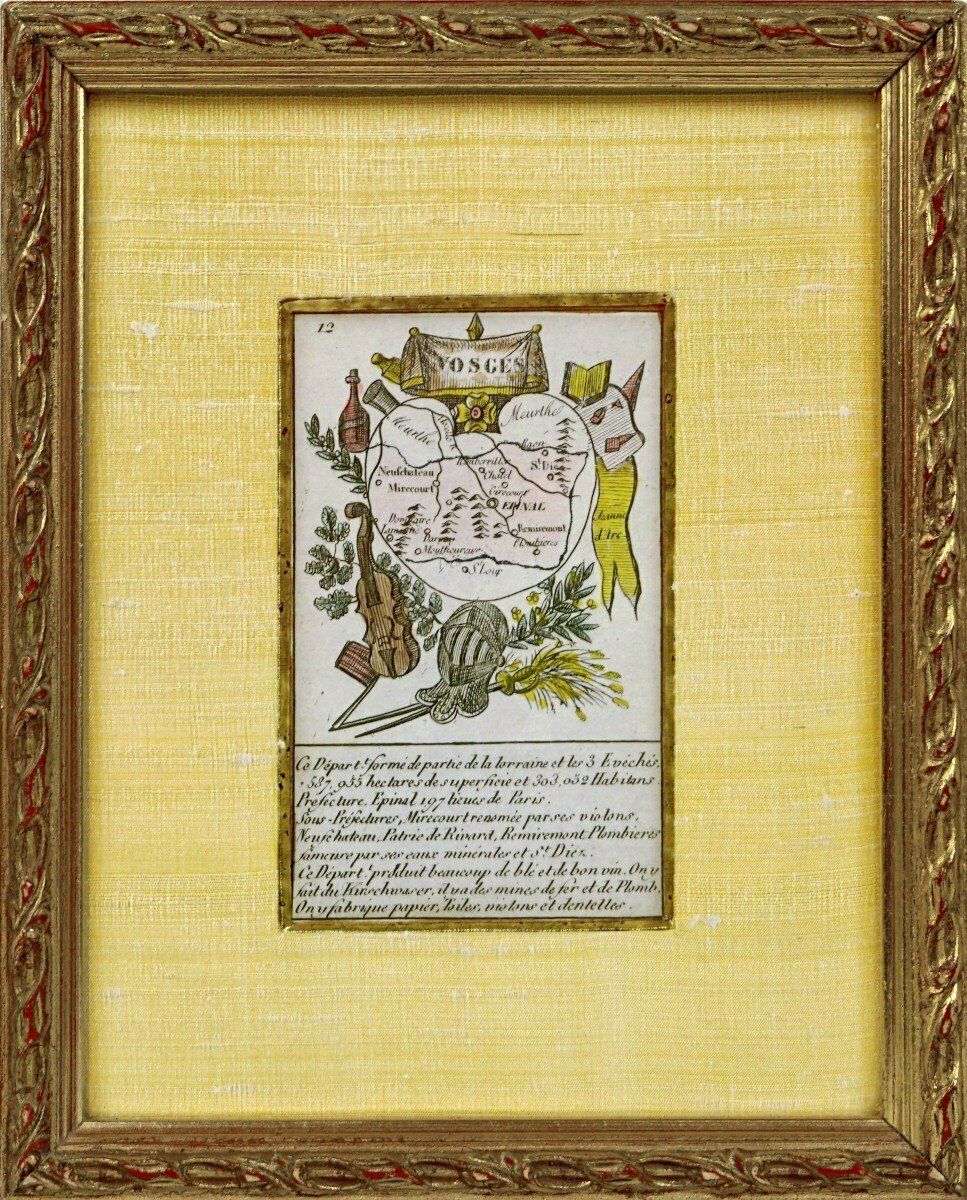 12
VOSGES
Meurthe
Meurthe
Raon
Rambervillé
St Dié
Chatel
Neufchateau
Mirecourt
Girecourt
EPINAL
Jeanne
d'Arc
Lamarche
Darney
Remiremont
Plombieres
Montheureux
St Loup
Ce Départ.t formé de partie de la lorraine et les 3 Evéchés,
537,955 hectares de superficie et 303,052 Habitans.
Préfecture, Epinal 197 lieues de Paris.
Sous-Préfectures, Mirecourt renomée par ses violons,
Neufchateau, Patrie de Rivard, Remiremont Plombieres
fameuse par ses eaux minérales et St Diez.
Ce Départ.t produit beaucoup de blé et de bon vin. On y
fait du Kirschwaser, il y a des mines de fer et de Plomb,
On y fabrique papier, toiles, violons et dentelles.